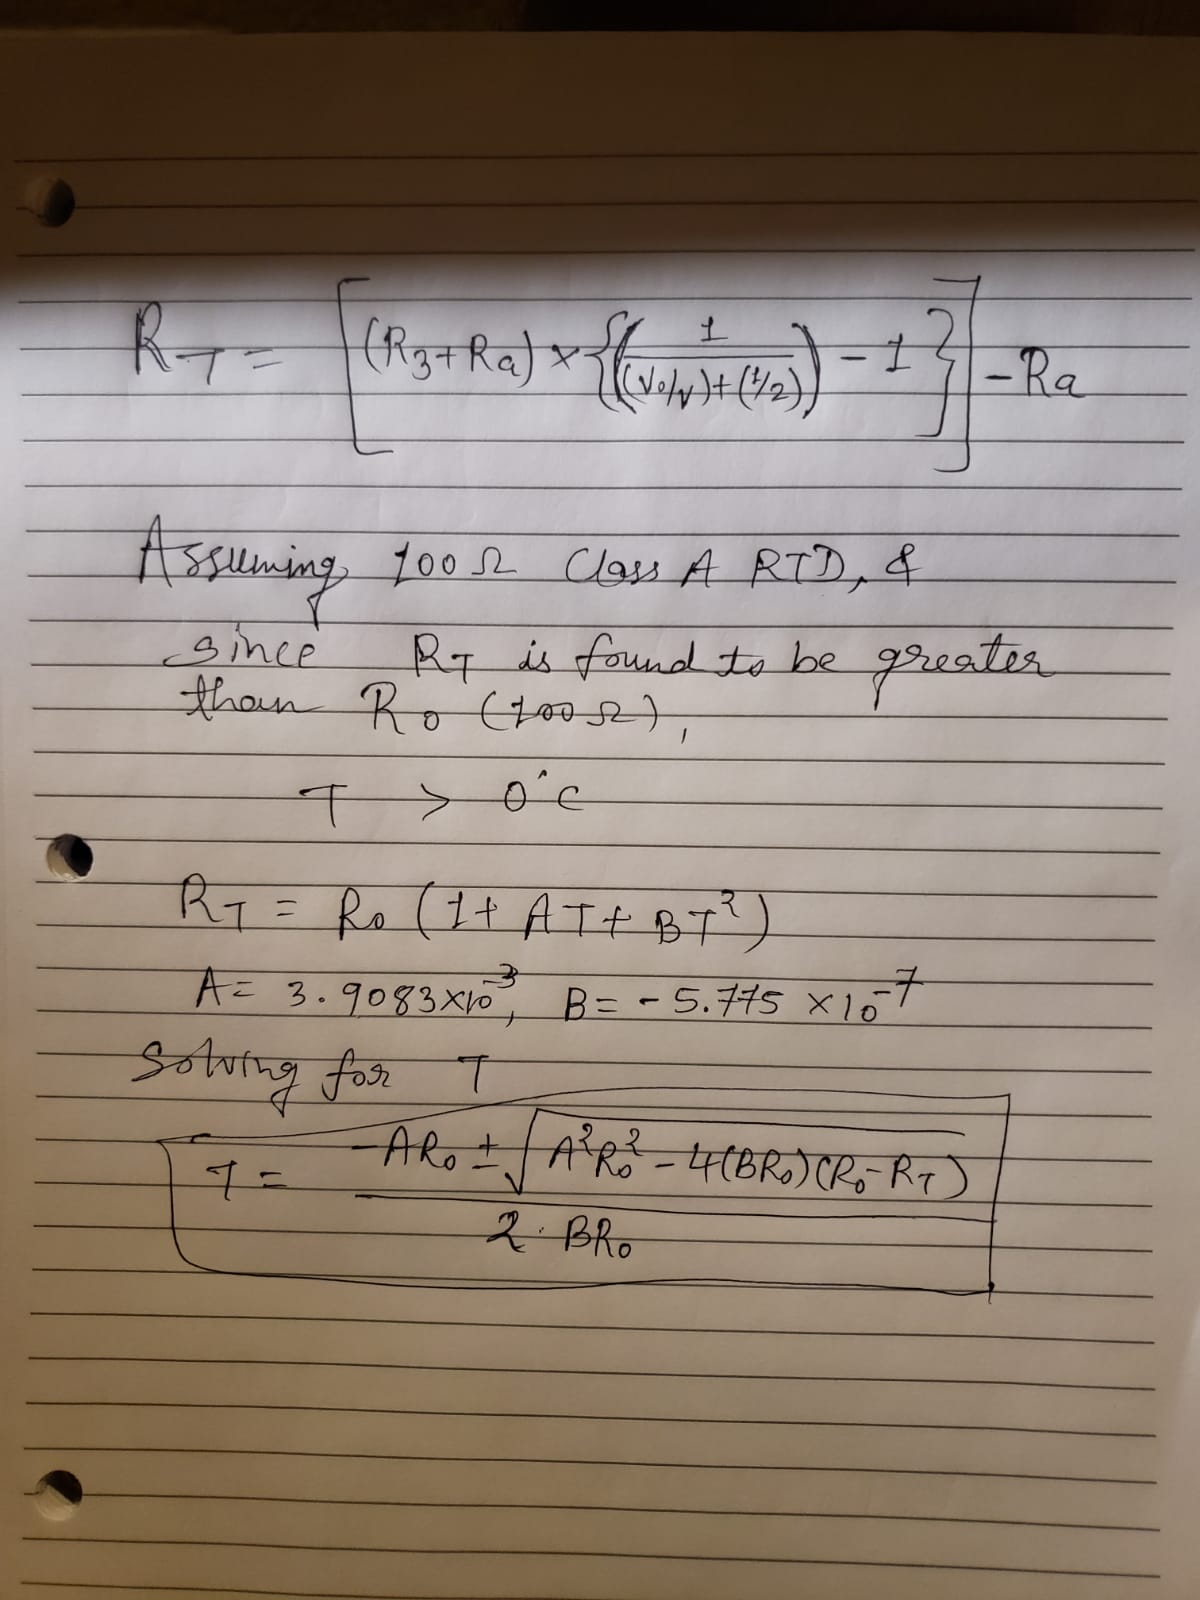 R_T = [(R3+Ra) × {(1/((Vo/V)+(1/2))) - 1}] - Ra
Assuming 100Ω Class A RTD, &
since R_T is found to be greater
than Ro (100Ω),
T > 0°C
R_T = Ro (1+ AT+ BT²)
A= 3.9083×10⁻³, B= -5.775 ×10⁻⁷
Solving for T
T = (-ARo ± √(A²Ro² - 4(BRo)(Ro-R_T))) / (2·BRo)